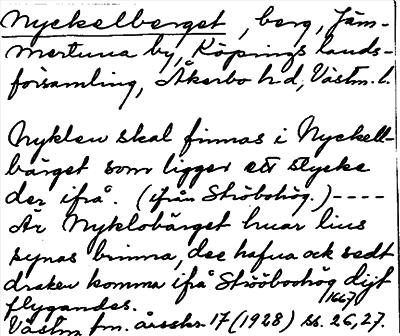 Nyckelberget, berg, Jäm-
mertuna by, Köpings lands-
församling, Åkerbo hd, Västm. l.
Nyklen skal finnas i Nyckell-
bärget som ligger ett stycke
der ifrå. (ifrån Ströbohög.) ----
Är Nyklobärget huar lius
synas brinna, dee hafua ock sedt
draken komma ifrå Strööboohög dijt
flygandes. 1667
Västm fm. årsskr. 17 (1928) ss. 26, 27.